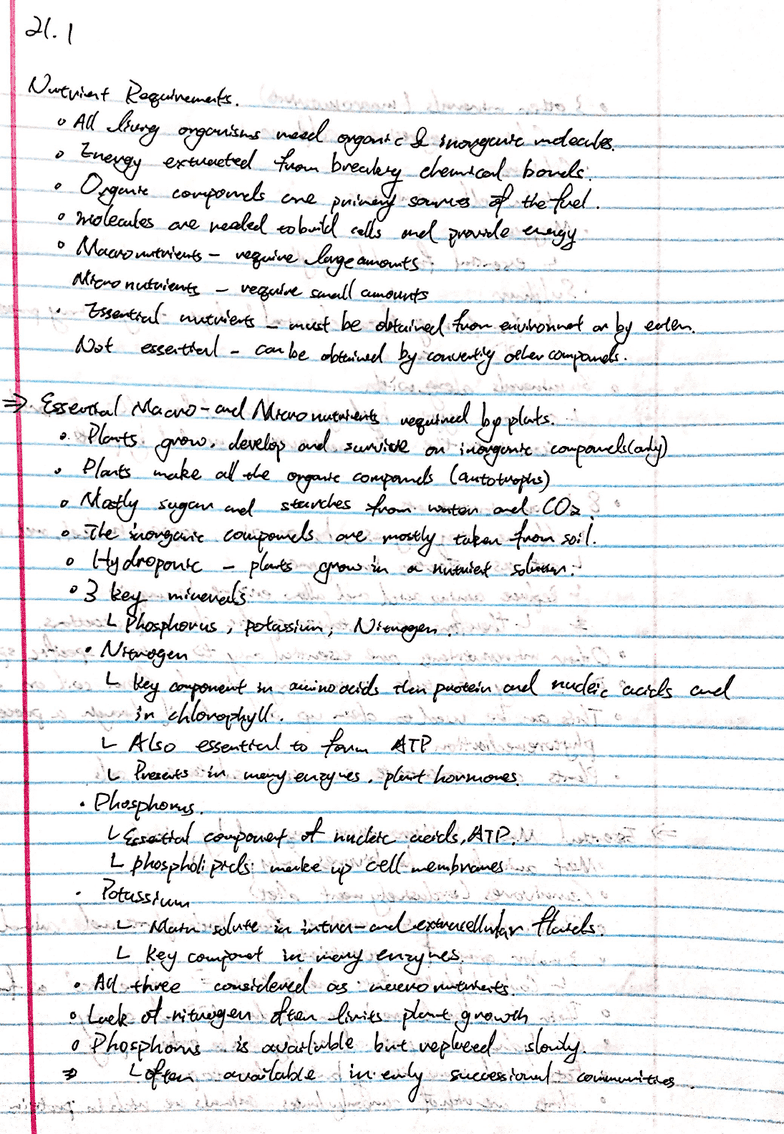 21.1
Nutrient Requirements.
• All living organisms need organic & inorganic molecules.
• Energy extracted from breaking chemical bonds.
• Organic compounds are primary sources of the fuel.
• molecules are needed to build cells and provide energy
• Macronutrients - require large amounts
Micronutrients - require small amounts
• Essential nutrients - must be obtained from environment or by eaten.
Not essential - can be obtained by converting other compounds.
⇒ Essential Macro- and Micronutrients required by plants.
• Plants grow, develop and survive on inorganic compounds (only)
• Plants make all the organic compounds (autotrophs)
• Mostly sugar and starches from water and CO2.
• The inorganic compounds are mostly taken from soil.
• Hydroponic - plants grow in a nutrient solution.
• 3 key minerals
└ Phosphorus, potassium, Nitrogen.
• Nitrogen
└ key component in amino acids then protein and nucleic acids and
in chlorophyll.
└ Also essential to form ATP
└ Presents in many enzymes, plant hormones.
• Phosphorus.
└ Essential component of nucleic acids, ATP.
└ phospholipids make up cell membranes
• Potassium
└ Main solute in intra- and extracellular fluids.
└ key component in many enzymes.
• All three considered as macronutrients.
• Lack of nitrogen often limits plant growth
• Phosphorus is available but replaced slowly.
⇒ └ often available in early successional communities.